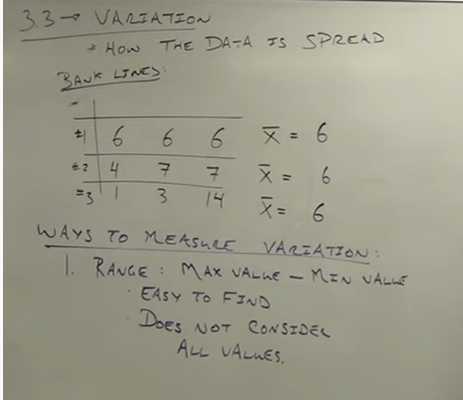 3.3 → VARIATION
* HOW THE DATA IS SPREAD
BANK LINES:
#1 6 6 6 x̄ = 6
#2 4 7 7 x̄ = 6
#3 1 3 14 x̄ = 6
WAYS TO MEASURE VARIATION:
1. RANGE: MAX VALUE - MIN VALUE
· EASY TO FIND
· DOES NOT CONSIDER
ALL VALUES.